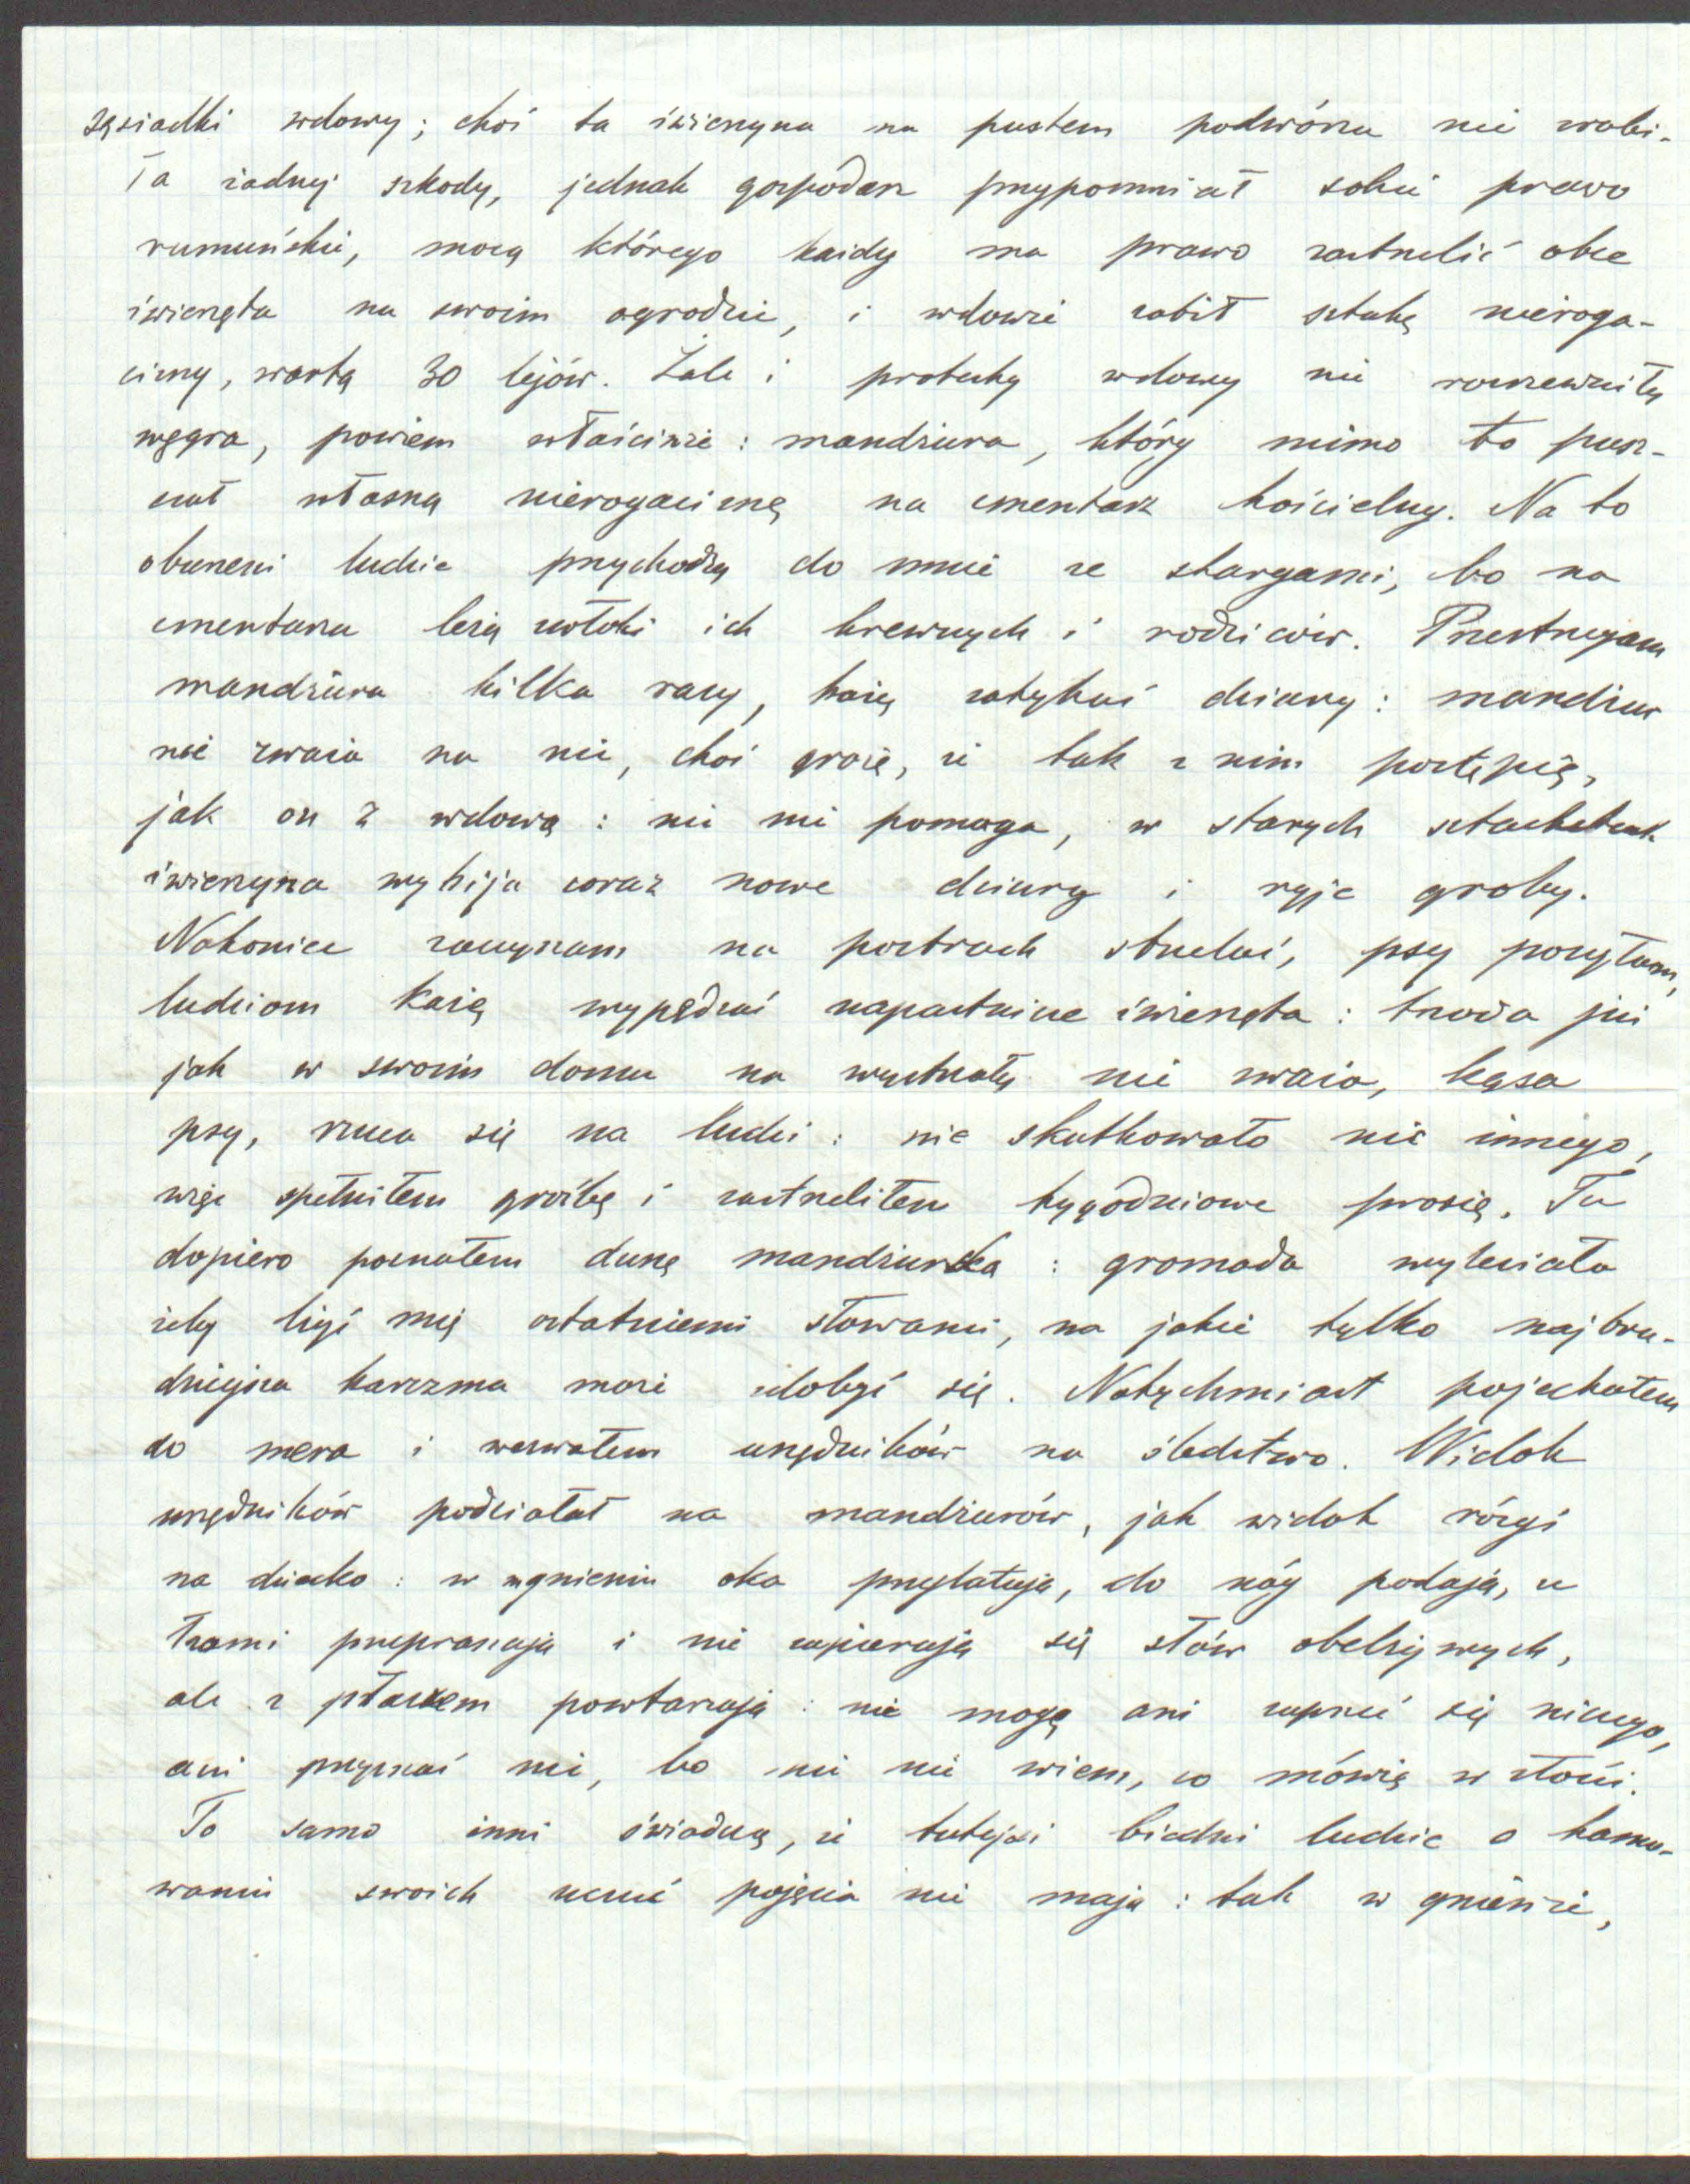 sąsiadki wdowy; choć ta świerzyna na pustem podwórzu nie zrobi-
ła żadnej szkody, jednak gospodarz przypomniał sobie prawo
rumuńskie, mocą którego każdy ma prawo zastrzelić obce
zwierzęta na swoim ogrodzie, i wdowie zabił sztukę nieroga-
cizny, wartą 30 lejów. Żale i protesty wdowy nie rozrzewniły
węgra, powiem właściwie: mandżura, który mimo to pusz-
czał własną nierogaciznę na cmentarz kościelny. Na to
oburzeni ludzie przychodzą do mnie ze skargami, bo na
cmentarzu leżą zwłoki ich krewnych i rodziców. Przestrzegam
mandżura kilka razy, każę zatykać dziury: mandżur
nie zważa na nic, choć grożę, że tak z nim postąpię,
jak on z wdową: nic nie pomaga, w starych sztachetach
świerzyna wybija coraz nowe dziury i ryje groby.
Nakoniec zaczynam na postrach strzelać, psy poszczułem,
ludziom każę wypędzać napastnicze zwierzęta: trzoda już
jak w swoim domu na wystrzały nie zważa, kąsa
psy, rzuca się na ludzi: nie skutkowało nic innego,
więc spełniłem groźbę i zastrzeliłem tygodniowe prosię. Tu
dopiero poznałem duszę mandżurska: gromada wyleciała
żeby lżyć mię ostatniemi słowami, na jakie tylko najbru-
dniejsza karczma może zdobyć się. Natychmiast pojechałem
do mera i wezwałem urzędników na śledztwo. Widok
urzędników podziałał na mandżurów, jak widok rózgi
na dziecko: w mgnieniu oka przylatują, do nóg padają, ze
łzami przepraszają i nie zapierają się słów obelżywych,
ale z płaczem powtarzają: nie mogę ani zaprzeć się niczego,
ani przyznać nie, bo nic nie wiem, co mówię w złości.
To samo inni świadczą, że tutejsi biedni ludzie o hamo-
waniu swoich uczuć pojęcia nie mają: tak w gniewie,